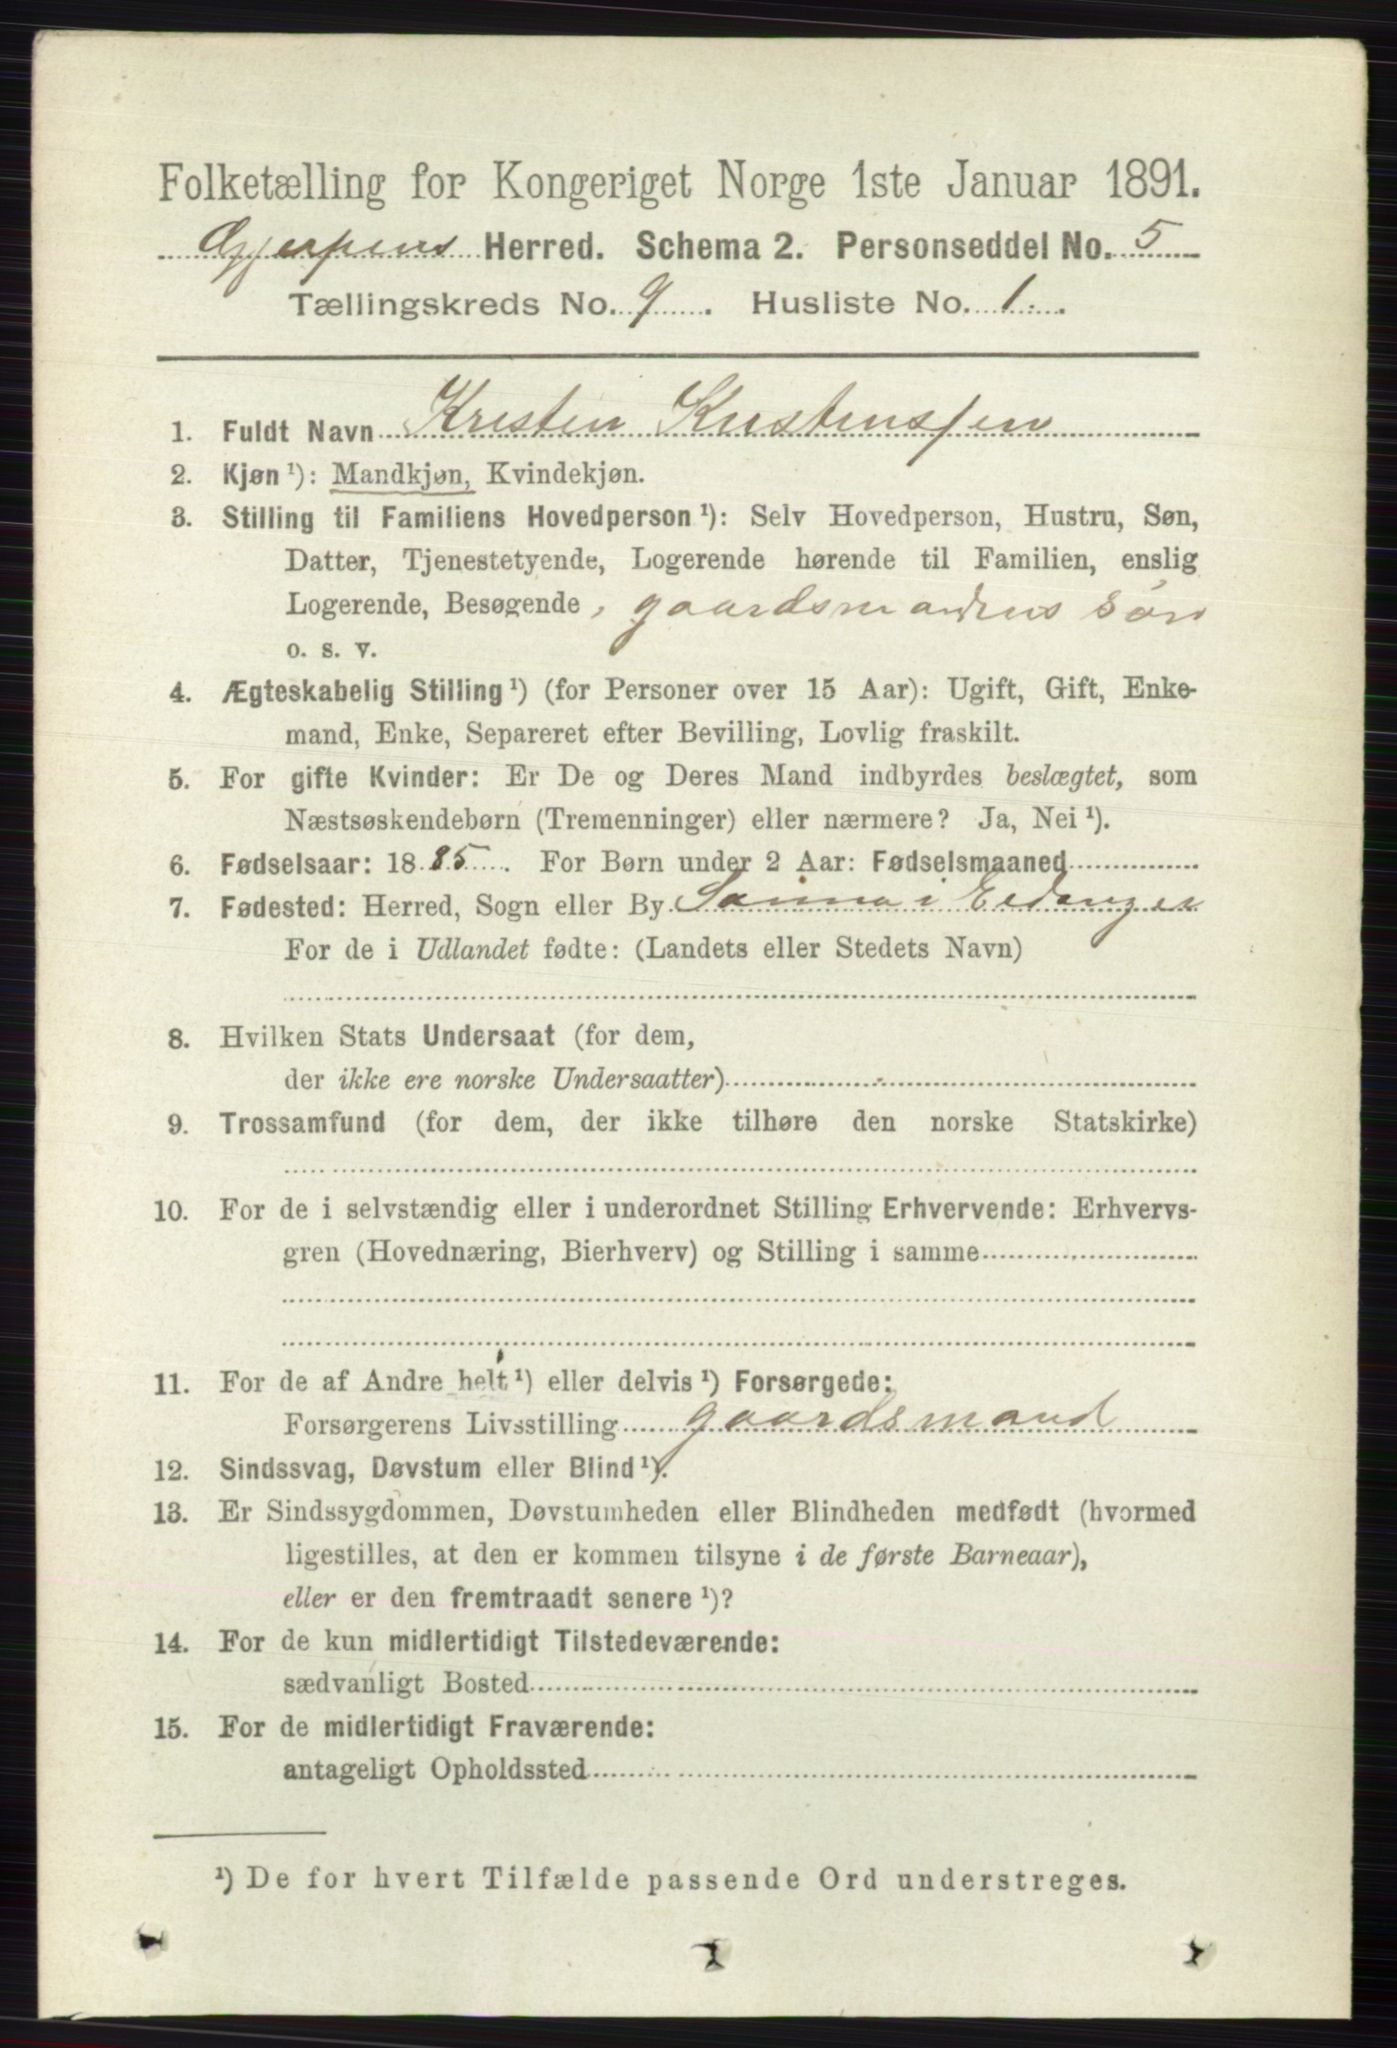 Folketælling for Kongeriget Norge 1ste Januar 1891.
Gjerpens Herred. Schema 2. Personseddel No. 5
Tællingskreds No. 9. Husliste No. 1.
1. Fuldt Navn Kristen Kristenssen
2. Kjøn ¹): Mandkjøn, Kvindekjøn.
3. Stilling til Familiens Hovedperson ¹): Selv Hovedperson, Hustru, Søn,
Datter, Tjenestetyende, Logerende hørende til Familien, enslig
Logerende, Besøgende, gaardsmandens søn
o. s. v.
4. Ægteskabelig Stilling ¹) (for Personer over 15 Aar): Ugift, Gift, Enke-
mand, Enke, Separeret efter Bevilling, Lovlig fraskilt.
5. For gifte Kvinder: Er De og Deres Mand indbyrdes beslægtet, som
Næstsøskendebørn (Tremenninger) eller nærmere? Ja, Nei ¹).
6. Fødselsaar: 1885. For Børn under 2 Aar: Fødselsmaaned
7. Fødested: Herred, Sogn eller By i Eidanger
For de i Udlandet fødte: (Landets eller Stedets Navn)
8. Hvilken Stats Undersaat (for dem,
der ikke ere norske Undersaatter)
9. Trossamfund (for dem, der ikke tilhøre den norske Statskirke)
10. For de i selvstændig eller i underordnet Stilling Erhvervende: Erhvervs-
gren (Hovednæring, Bierhverv) og Stilling i samme
11. For de af Andre helt ¹) eller delvis ¹) Forsørgede:
Forsørgerens Livsstilling gaardsmand
12. Sindssvag, Døvstum eller Blind ¹).
13. Er Sindssygdommen, Døvstumheden eller Blindheden medfødt (hvormed
ligestilles, at den er kommen tilsyne i de første Barneaar),
eller er den fremtraadt senere ¹)?
14. For de kun midlertidigt Tilstedeværende:
sædvanligt Bosted
15. For de midlertidigt Fraværende:
antageligt Opholdssted
¹) De for hvert Tilfælde passende Ord understreges.